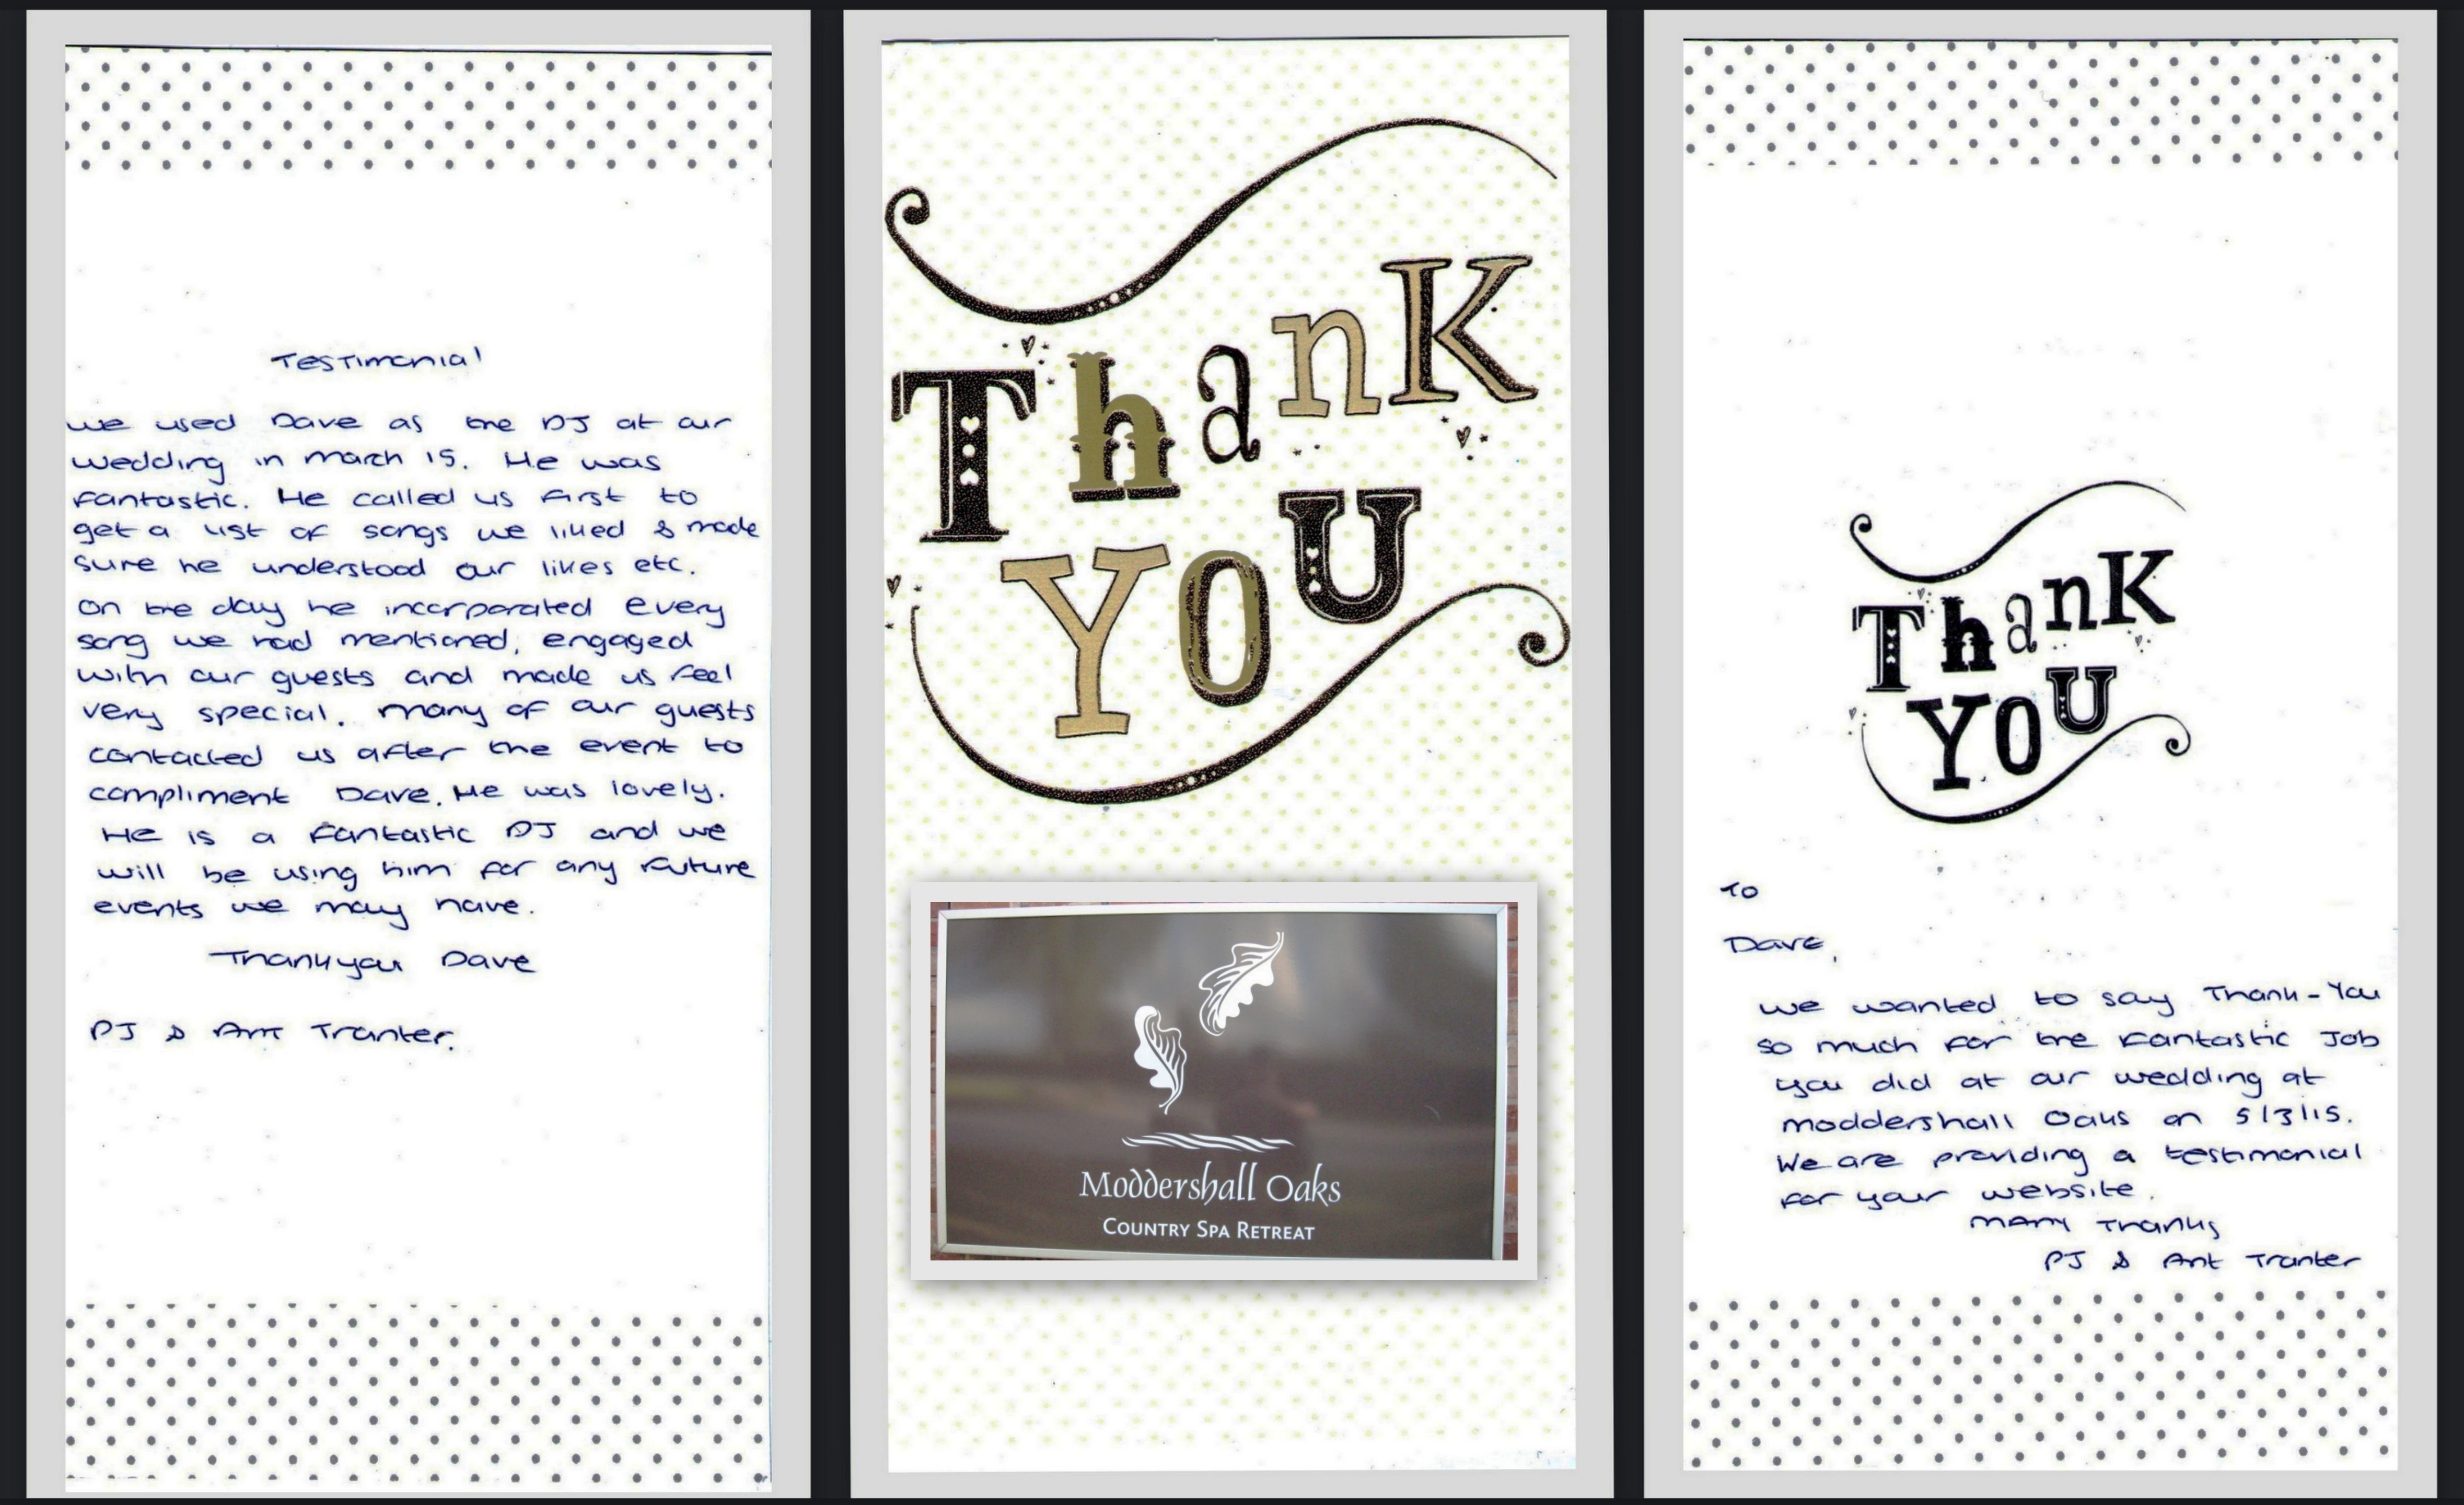 Testimonial
we used Dave as the DJ at our
wedding in march 15. He was
fantastic. He called us first to
get a list of songs we liked & made
sure he understood our likes etc.
on the day he incorporated every
song we had mentioned, engaged
with our guests and made us feel
very special. many of our guests
contacted us after the event to
compliment Dave. He was lovely.
He is a fantastic DJ and we
will be using him for any future
events we may have.
Thankyou Dave
PJ & Ant Tranter.
Thank
You
Moddershall Oaks
Country Spa Retreat
Thank
You
To
Dave,
we wanted to say Thank-You
so much for the fantastic Job
you did at our wedding at
moddershall Oaks on 5/3/15.
We are providing a testimonial
for your website.
many Thanks
PJ & Ant Tranter